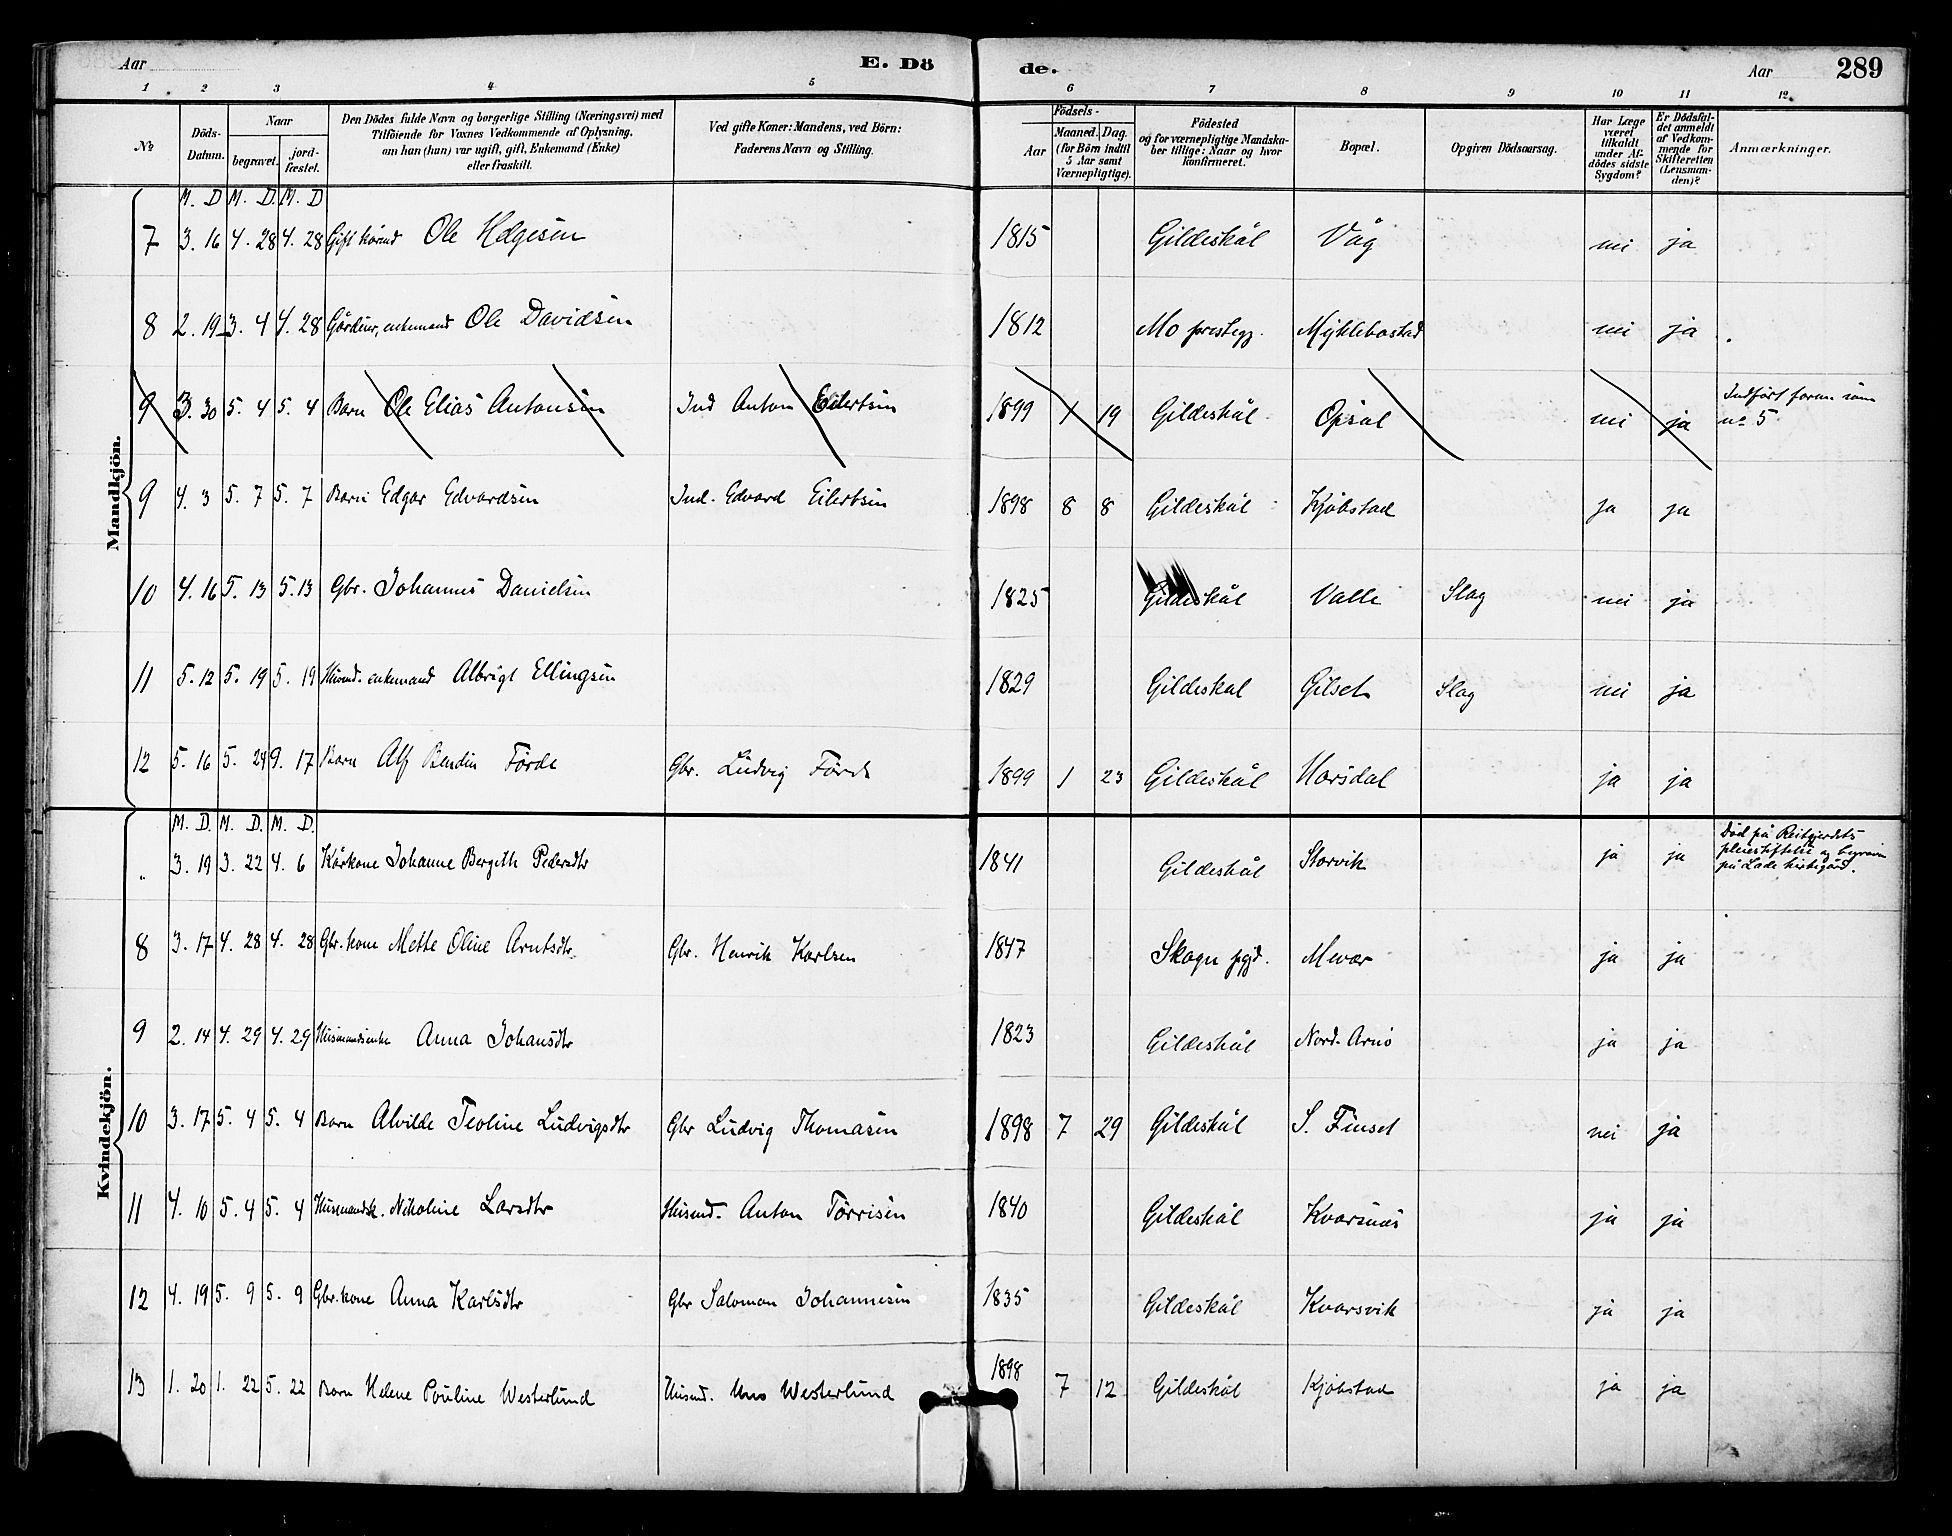 Aar
E. Dö
de.
Aar
289
1 2 3 4 5 6 7 8 9 10 11 12.
No
Döds-
Datum.
Naar
begravet.
jord-
fæstet.
Den Dödes fulde Navn og borgerlige Stilling (Næringsvei) med
Tilföiende for Voxnes Vedkommende af Oplysning,
om han (hun) var ugift, gift, Enkemand (Enke)
eller fraskilt.
Ved gifte Koner: Mandens, ved Börn:
Faderens Navn og Stilling.
Födsels-
Aar
Maaned. Dag.
(for Börn indtil
5 Aar samt
Værnepligtige).
Födested
og for værnepligtige Mandska-
ber tillige: Naar og hvor
konfirmeret.
Bopæl.
Opgiven Dödsaarsag.
Har Læge
været
tilkaldt
under Af-
dödes sidste
Sygdom?
Er Dödsfal-
det anmeldt
af Vedkom-
mende for
Skifteretten
(Lensman-
den)?
Anmærkninger.
Mandkjön.
M. D M. D. M. D
7 3. 16 4. 28 4. 28 Gift Ole Helgesen 1815 Gildeskål Våg nei ja
8 2. 19 3. 4 4. 28 enkemand Ole Davidsen 1812 Mo prestegj. Myklebostad nei ja
9 3. 30 5. 4 5. 4 Barn Ole Elias Antonsen Ind Anton Eilertsen 1899 1 19 Gildeskål Opsal nei ja Indført foran som
no 5
9 4. 3 5. 7 5. 7 Barn Edgar Edvardsen Ind. Edvard Eilertsen 1898 8 8 Gildeskål Kjøbstad ja ja
10 4. 16 5. 13 5. 13 Gbr. Johannes Danielsen 1825 Gildeskål Valle Slag nei ja
11 5. 12 5. 19 5. 19 Husmd. enkemand Albrigt Ellingsen 1829 Gildeskal Gilset Slag nei ja
12 5. 16 5. 24 9. 17 Barn Alf Førde Gbr. Ludvig Førde 1899 1 23 Gildeskål Horsdal ja ja
Kvindekjön.
M. D. M. D. M. D.
„ 3. 19 3. 22 4. 6 Kårkone Johanne Bergith Pedersdtr 1841 Gildeskål Storvik ja ja Død på Reitgjerdets
pleiestiftelse og begraven
på Lade kirkegård.
8 3. 17 4. 28 4. 28 Gbr. kone Mette Oline Arntsdtr. Gbr. Henrik Karlsen 1847 Skogn pgjd. Mevær ja ja
9 2. 14 4. 29 4. 29 Husmandsenke Anna Johansdtr 1823 Gildeskål Nord. Arnø ja ja
10 3. 17 5. 4 5. 4 Barn Alvilde Teoline Ludvigsdtr Gbr Ludvig Thomasen 1898 7 29 Gildeskål S. Finset nei ja
11 4. 10 5. 4 5. 4 Husmandsk. Nikoline Larsdtr Husmd. Anton Tørrisen 1840 Gildeskål Kvarsnes ja ja
12 4. 19 5. 9 5. 9 Gbr. kone Anna Karlsdtr Gbr Salomon Johannesen 1835 Gildeskål Kvarsvik ja ja
13 1. 20 1. 22 5. 22 Barn Helene Pouline Westerlund Husmd. Uno Westerlund 1898 7 12 Gildeskål Kjøbstad ja ja